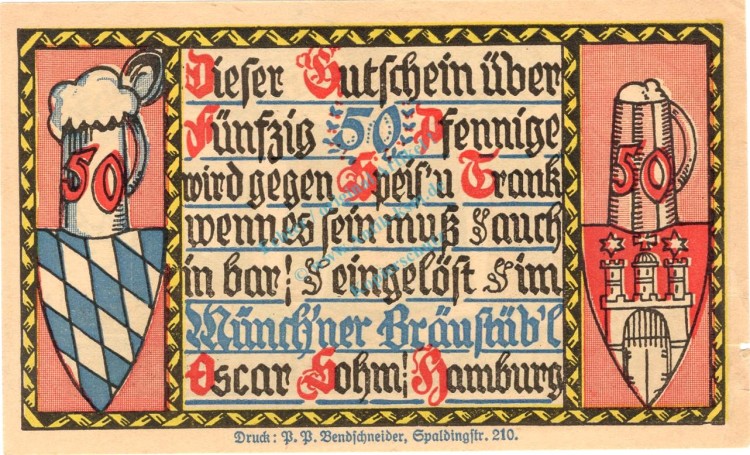 Dieser Gutschein über
Fünfzig 50 Pfennige
wird gegen Speis'u Trank
wenn es sein muß auch
in bar! eingelöst im
Münch'ner Bräustüb'l
Oscar Sohm! Hamburg
50
50
Druck: P. P. Bendschneider, Spaldingstr. 210.